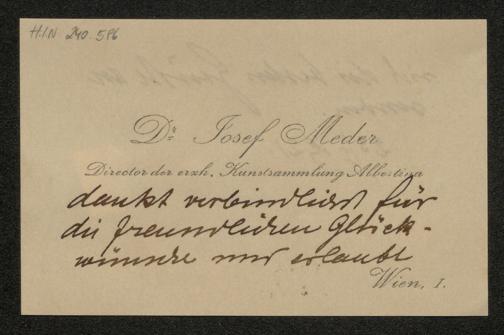 H.I.N. 240.586
Dr. Josef Meder
Director der erzh. Kunstsammlung Albertina
dankt verbindlichst für
die freundlichen Glück-
wünsche und erlaubt
Wien, I.